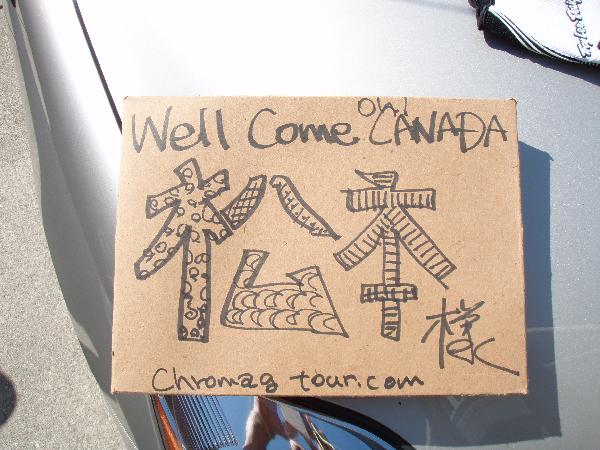 Well Come OH! CANADA
松本
様
Chromag tour.com